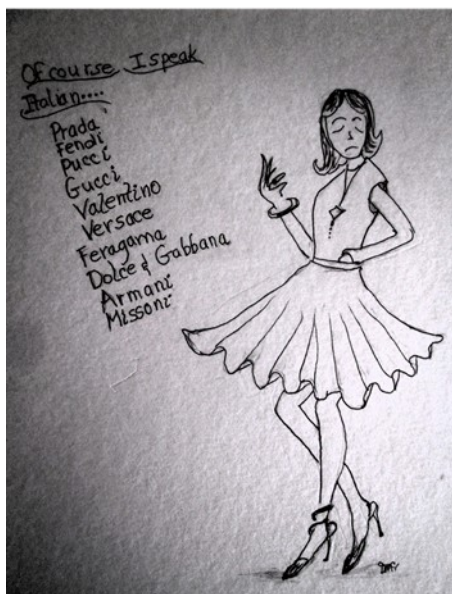 Of course I speak
Italian....
Prada
Fendi
Pucci
Gucci
Valentino
Versace
Feragama
Dolce & Gabbana
Armani
Missoni